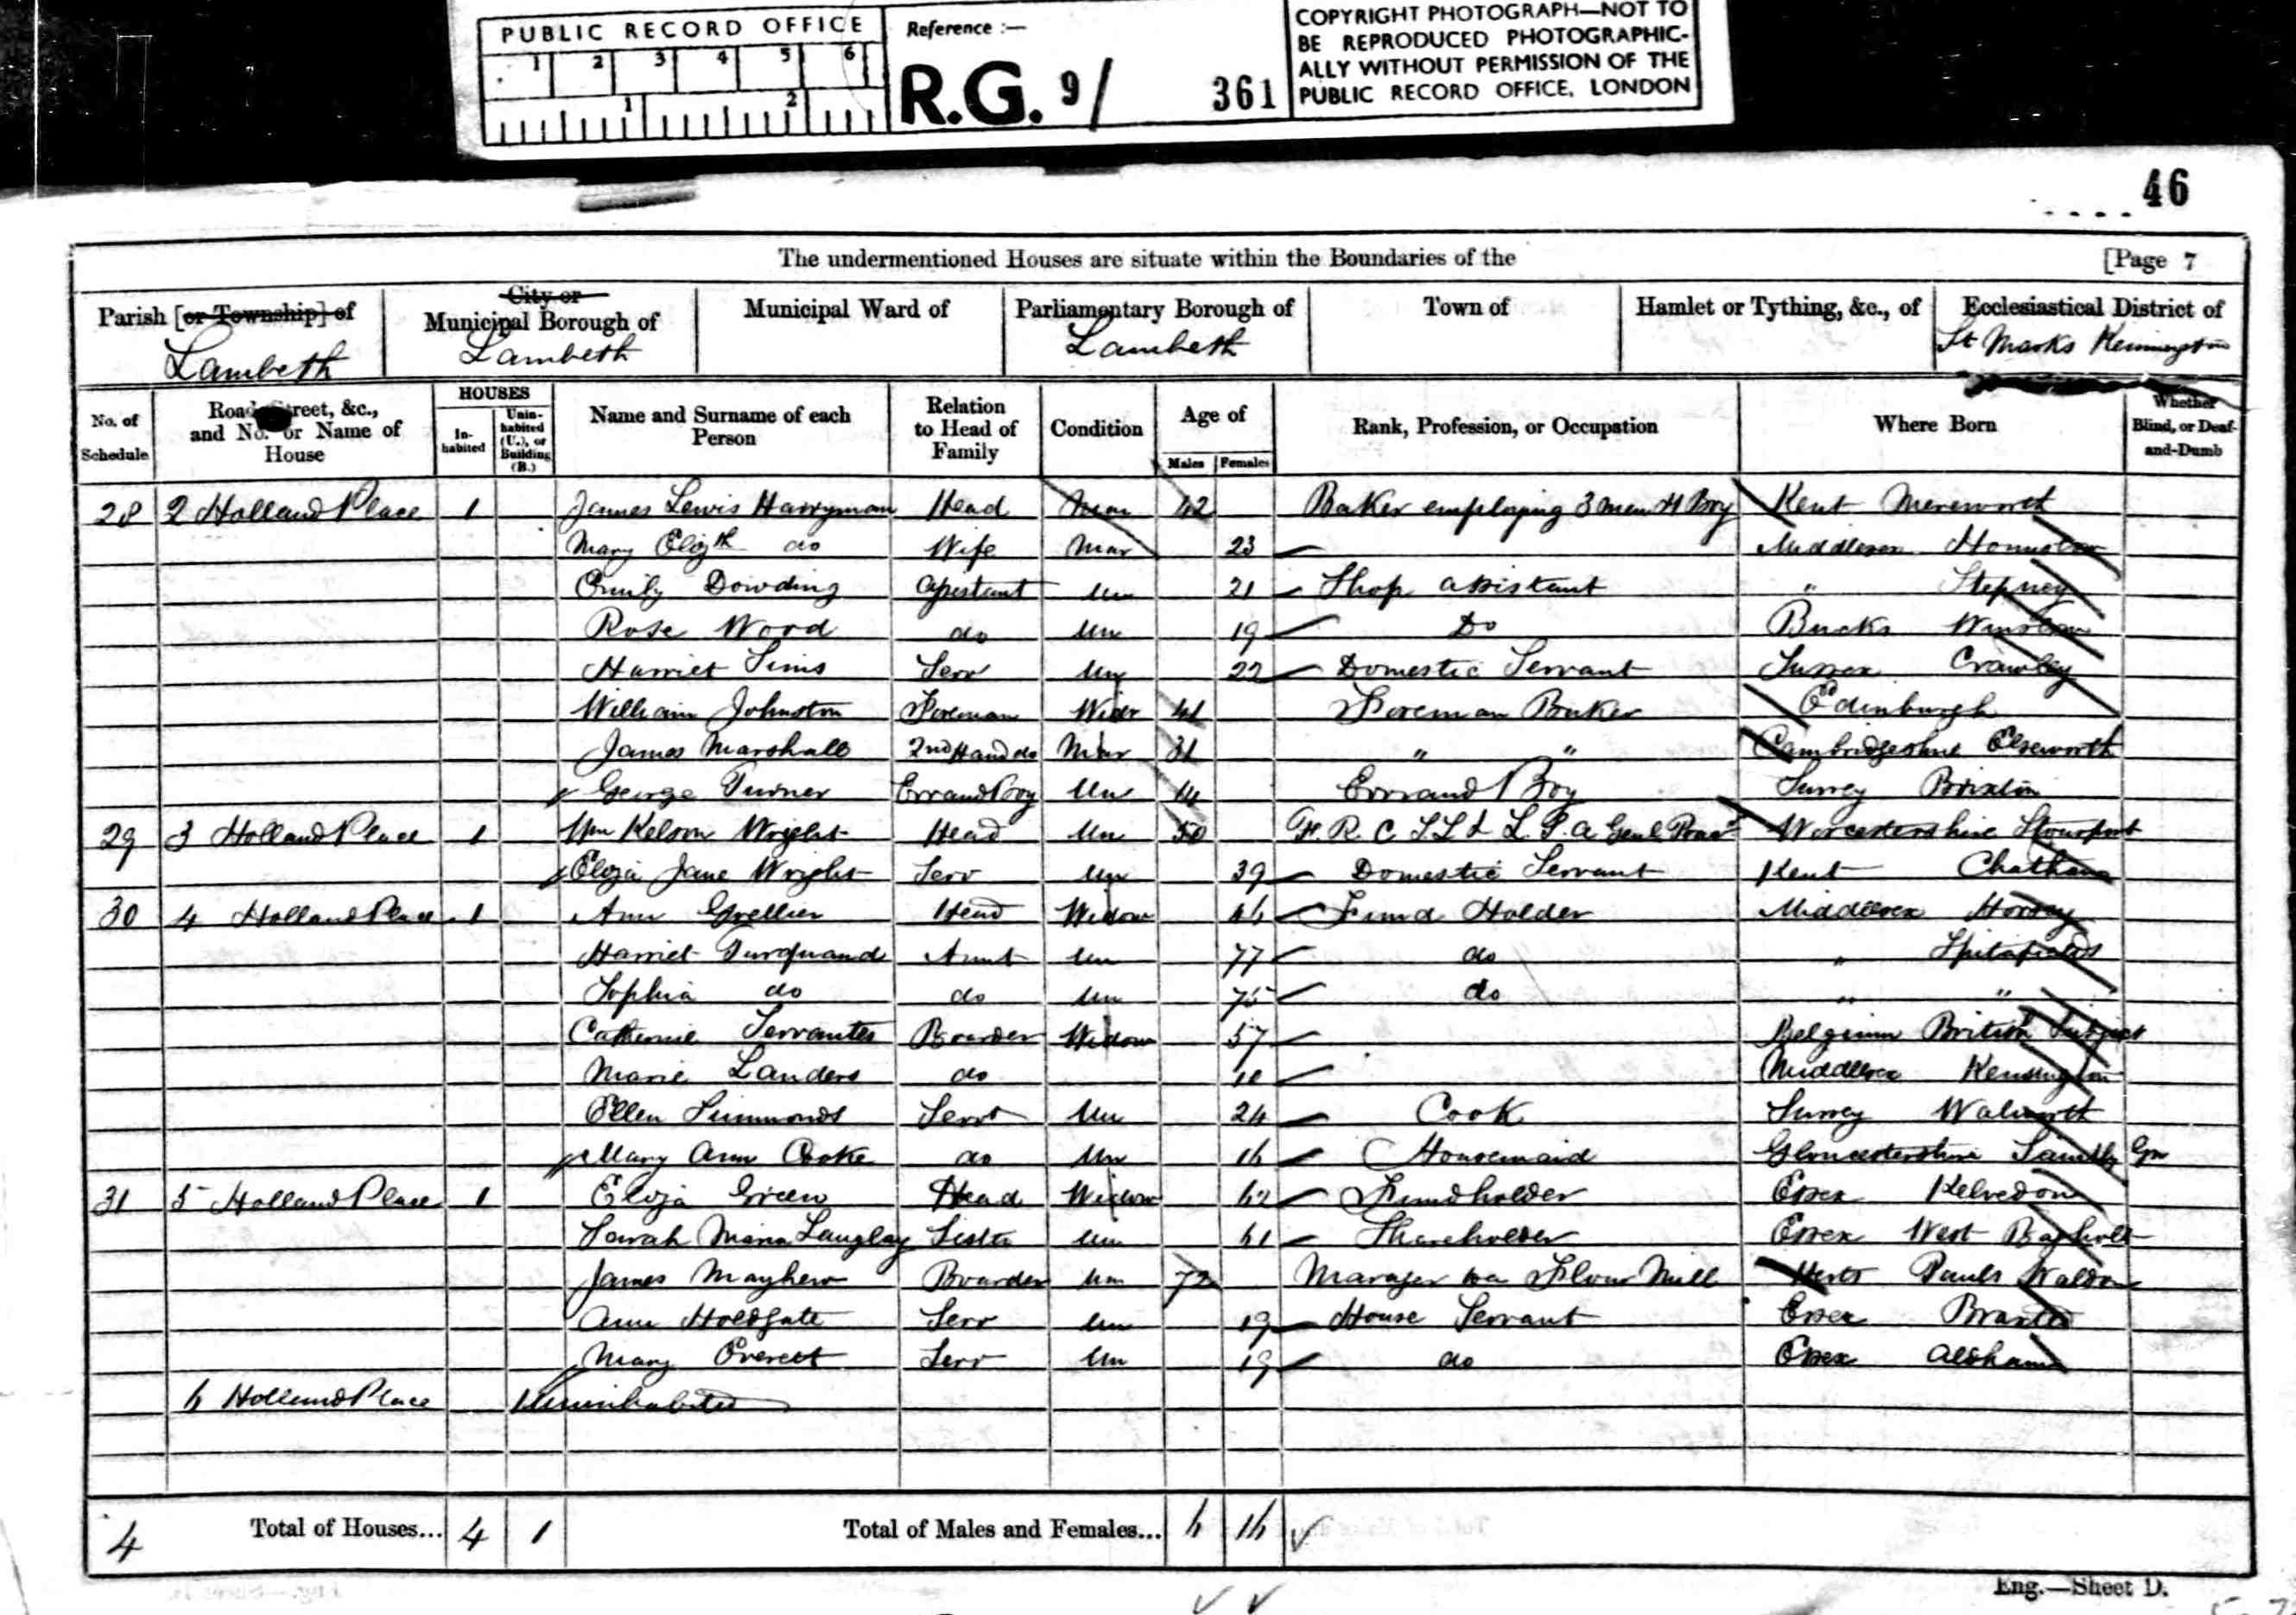 PUBLIC RECORD OFFICE
1 2 3 4 5 6
1 2
Reference :—
R.G. 9/ 361
COPYRIGHT PHOTOGRAPH—NOT TO
BE REPRODUCED PHOTOGRAPHIC-
ALLY WITHOUT PERMISSION OF THE
PUBLIC RECORD OFFICE, LONDON
46
The undermentioned Houses are situate within the Boundaries of the [Page 7
Parish [or Township] of Lambeth
City or Municipal Borough of Lambeth
Municipal Ward of
Parliamentary Borough of Lambeth
Town of
Hamlet or Tything, &c., of
Ecclesiastical District of St Marks Kennington
No. of Schedule
Road, Street, &c., and No. or Name of House
HOUSES
Inhabited
Uninhabited (U.), or Building (B.)
Name and Surname of each Person
Relation to Head of Family
Condition
Age of
Males Females
Rank, Profession, or Occupation
Where Born
Whether Blind, or Deaf-and-Dumb
28 2 Holland Place 1 James Lewis Harryman Head Mar 42 Baker employing 3 men Boy Kent Mereworth
Mary Elizth do Wife Mar 23 Middlesex Hounslow
Emily Dowding Assistant Un 21 Shop assistant " Stepney
Rose Wood do Un 19 Do Bucks Winslow
Harriet Sims Serv Un 22 Domestic Servant Sussex Crawley
William Johnston Foreman Widr 41 Foreman Baker Edinburgh
James Marshall 2nd Hand do Mar 31 " " Cambridgeshire Elsworth
George Turner Errand Boy Un 14 Errand Boy Surrey Brixton
29 3 Holland Place 1 Wm Kelson Wright Head Un 50 F.R.C.S. L & L.S.A Genl Worcestershire Stourport
Eliza Jane Wright Serv Un 39 Domestic Servant Kent Chatham
30 4 Holland Place 1 Ann Grellier Head Widow 46 Fund Holder Middlesex
Harriet Turquand Aunt Un 77 do " Spitalfields
Sophia do do Un 75 do " "
Catherine Servantes Boarder Widow 57 Belgium British Subject
Marie Landers do 10 Middlesex Kensington
Ellen Simmonds Servt Un 24 Cook Surrey Walworth
Mary Ann Cooke do Un 16 Housemaid Gloucestershire
31 5 Holland Place 1 Eliza Green Head Widow 62 Fundholder Essex Kelvedon
Sarah Maria Langley Sister Un 61 Shareholder Essex West Bergholt
James Mayhew Boarder Un 72 Manager to a Flour Mill Herts Pauls Walden
Ann Holdgate Serv Un 19 House Servant Essex Braxted
Mary Everett Serv Un 19 do Essex Aldham
6 Holland Place 1 Uninhabited
4 Total of Houses... 4 1 Total of Males and Females... 6 16
Eng.—Sheet D.